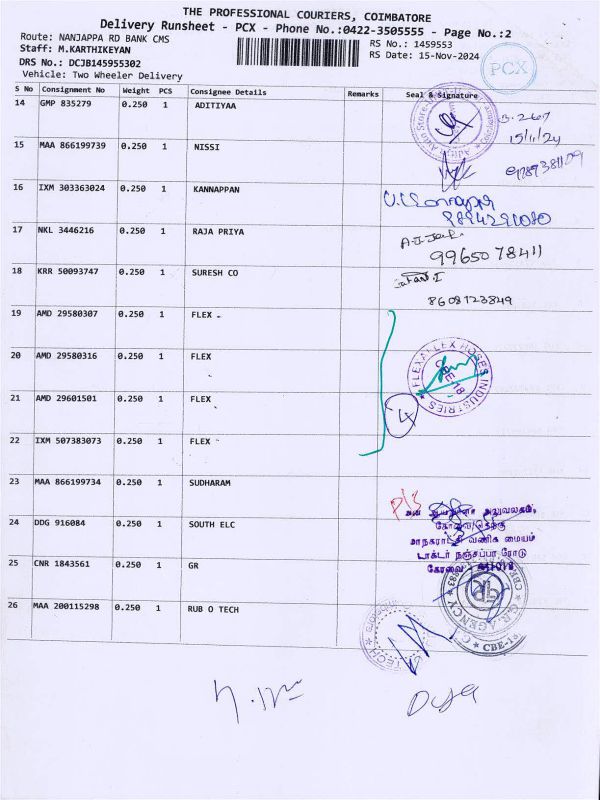 THE PROFESSIONAL COURIERS, COIMBATORE
Delivery Runsheet - PCX - Phone No.:0422-3505555 - Page No.:2
Route: NANJAPPA RD BANK CMS
Staff: M.KARTHIKEYAN
RS No.: 1459553
DRS No.: DCJB145955302
RS Date: 15-Nov-2024
Vehicle: Two Wheeler Delivery
PCX
S No Consignment No Weight PCS Consignee Details Remarks Seal & Signature
14 GMP 835279 0.250 1 ADITIYAA
15/11/24
15 MAA 866199739 0.250 1 NISSI
16 IXM 303363024 0.250 1 KANNAPPAN
17 NKL 3446216 0.250 1 RAJA PRIYA
9965078411
18 KRR 50093747 0.250 1 SURESH CO
8608123849
19 AMD 29580307 0.250 1 FLEX
20 AMD 29580316 0.250 1 FLEX
FLEXAFLEX HOSES INDUSTRIES
21 AMD 29601501 0.250 1 FLEX
4
22 IXM 507383073 0.250 1 FLEX
23 MAA 866199734 0.250 1 SUDHARAM
அலுவலகம்,
24 DDG 916084 0.250 1 SOUTH ELC
மாநகராட்சி வணிக மையம்
டாக்டர் நஞ்சப்பா ரோடு
25 CNR 1843561 0.250 1 GR
கோவை
G.R. AGENCY
CBE-18
26 MAA 200115298 0.250 1 RUB O TECH